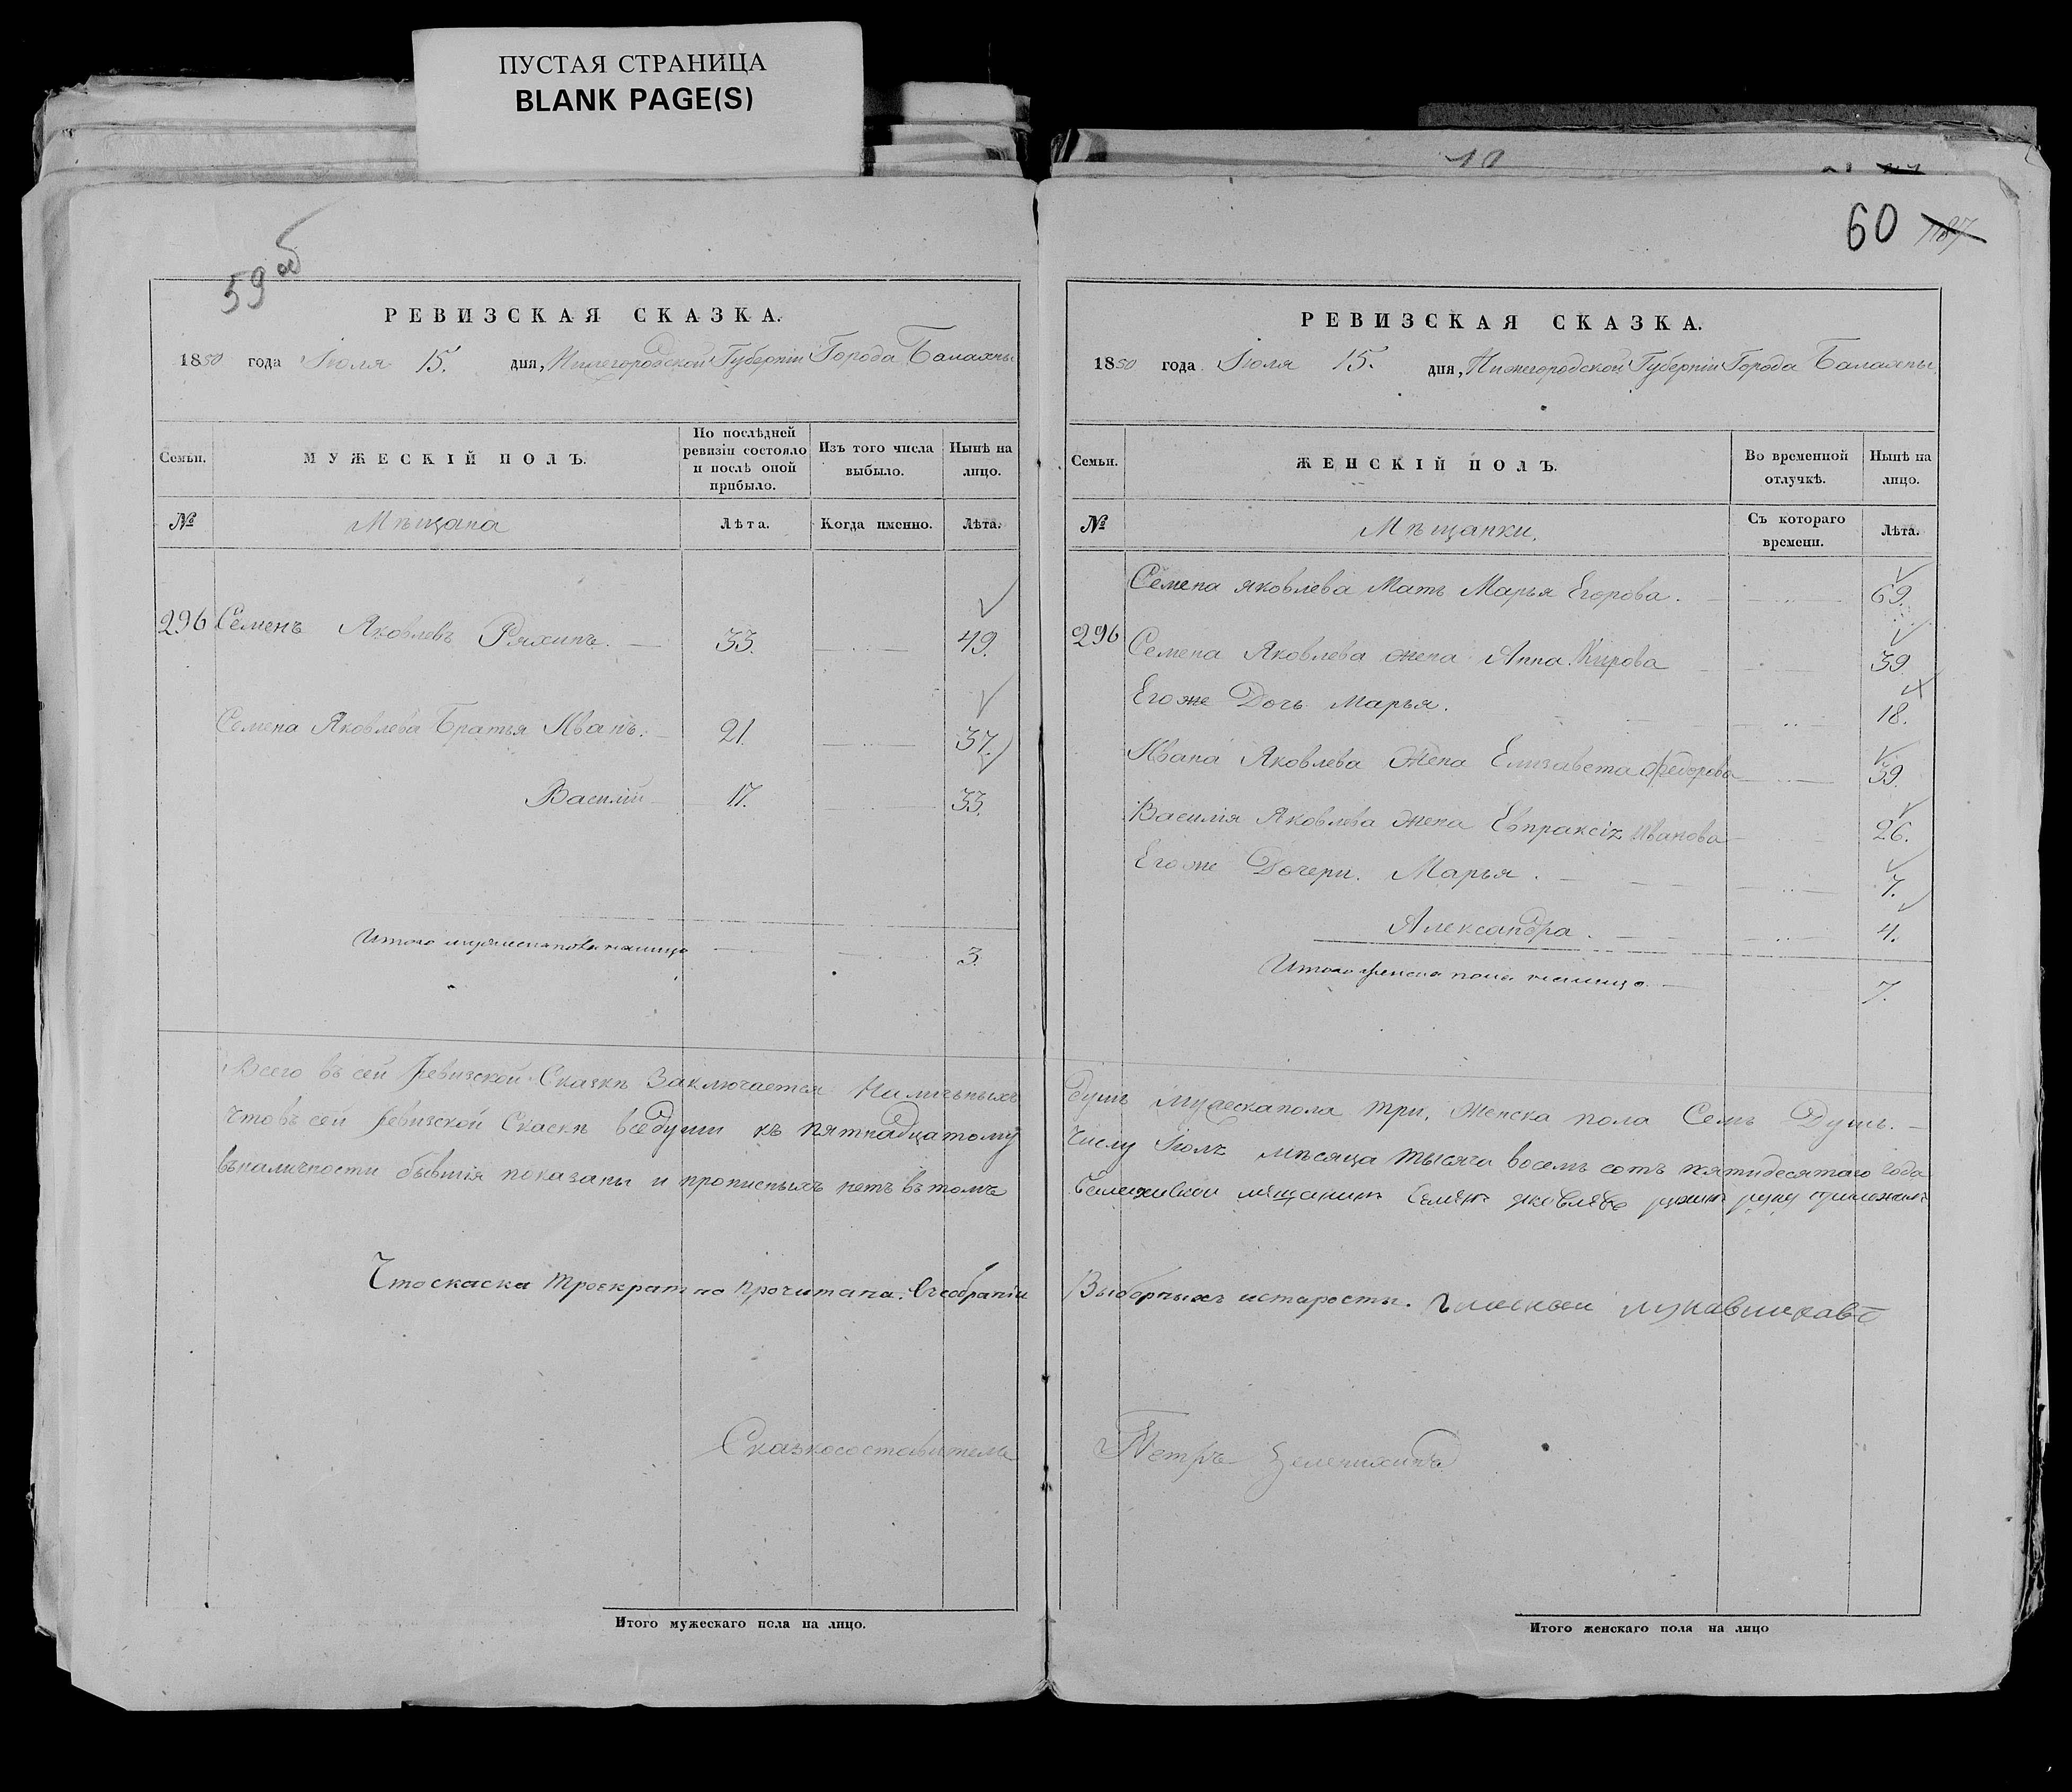 ПУСТАЯ СТРАНИЦА
BLANK PAGE(S)
59 об
РЕВИЗСКАЯ СКАЗКА.
1850 года Іюля 15. дня, Нижегородской Губерніи Города Балахны
Семьи. МУЖЕСКІЙ ПОЛЪ. По послѣдней ревизіи состояло и послѣ оной прибыло. Изъ того числа выбыло. Нынѣ на лицо.
№ Мѣщана Лѣта. Когда именно. Лѣта.
296 Семенъ Яковлевъ Ряхинъ. 33. 49.
Семена Яковлева Братья Иванъ. 21. 37.
Василій 17. 33.
Итого мужеска пола налицо 3.
Всего въ сей Ревизской Сказкѣ Заключается Наличныхъ
Что въ сей Ревизской Скаскѣ все души къ пятнадцатому
въ наличности бывшія показаны и прописныхъ нетъ въ томъ
Что скаска троекратно прочитана. Въ собраніи
Сказкосоставитель
Итого мужескаго пола на лицо.
60 187
РЕВИЗСКАЯ СКАЗКА.
1850 года Іюля 15. дня, Нижегородской Губерніи Города Балахны
Семьи. ЖЕНСКІЙ ПОЛЪ. Во временной отлучкѣ. Нынѣ на лицо.
№ Мѣщанки. Съ котораго времени. Лѣта.
Семена Яковлева Мать Марья Егорова. 69.
296 Семена Яковлева жена Анна Кирова 39
Его же Дочь Марья. 18.
Ивана Яковлева Жена Елизавета Федорова 39.
Василія Яковлева жена Евпраксія Иванова 26.
Его же Дочери. Марья. 7.
Александра. 4.
Итого женска пола налицо. 7.
душъ мужеска пола три, Женска пола Семь Душъ.
Числу Іюля мѣсяца тысяча восемь сотъ пятидесятаго года
мещанинъ Семен яковлевъ руку приложилъ
Выборныхъ и старосты.
Петръ
Итого женскаго пола на лицо